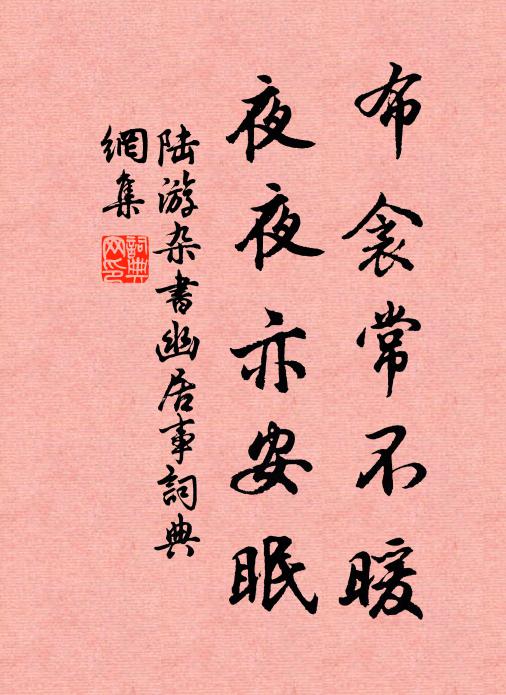 布衾常不暖
夜夜亦安眠
陆游杂書幽居事詞典
網集
詞典
网印